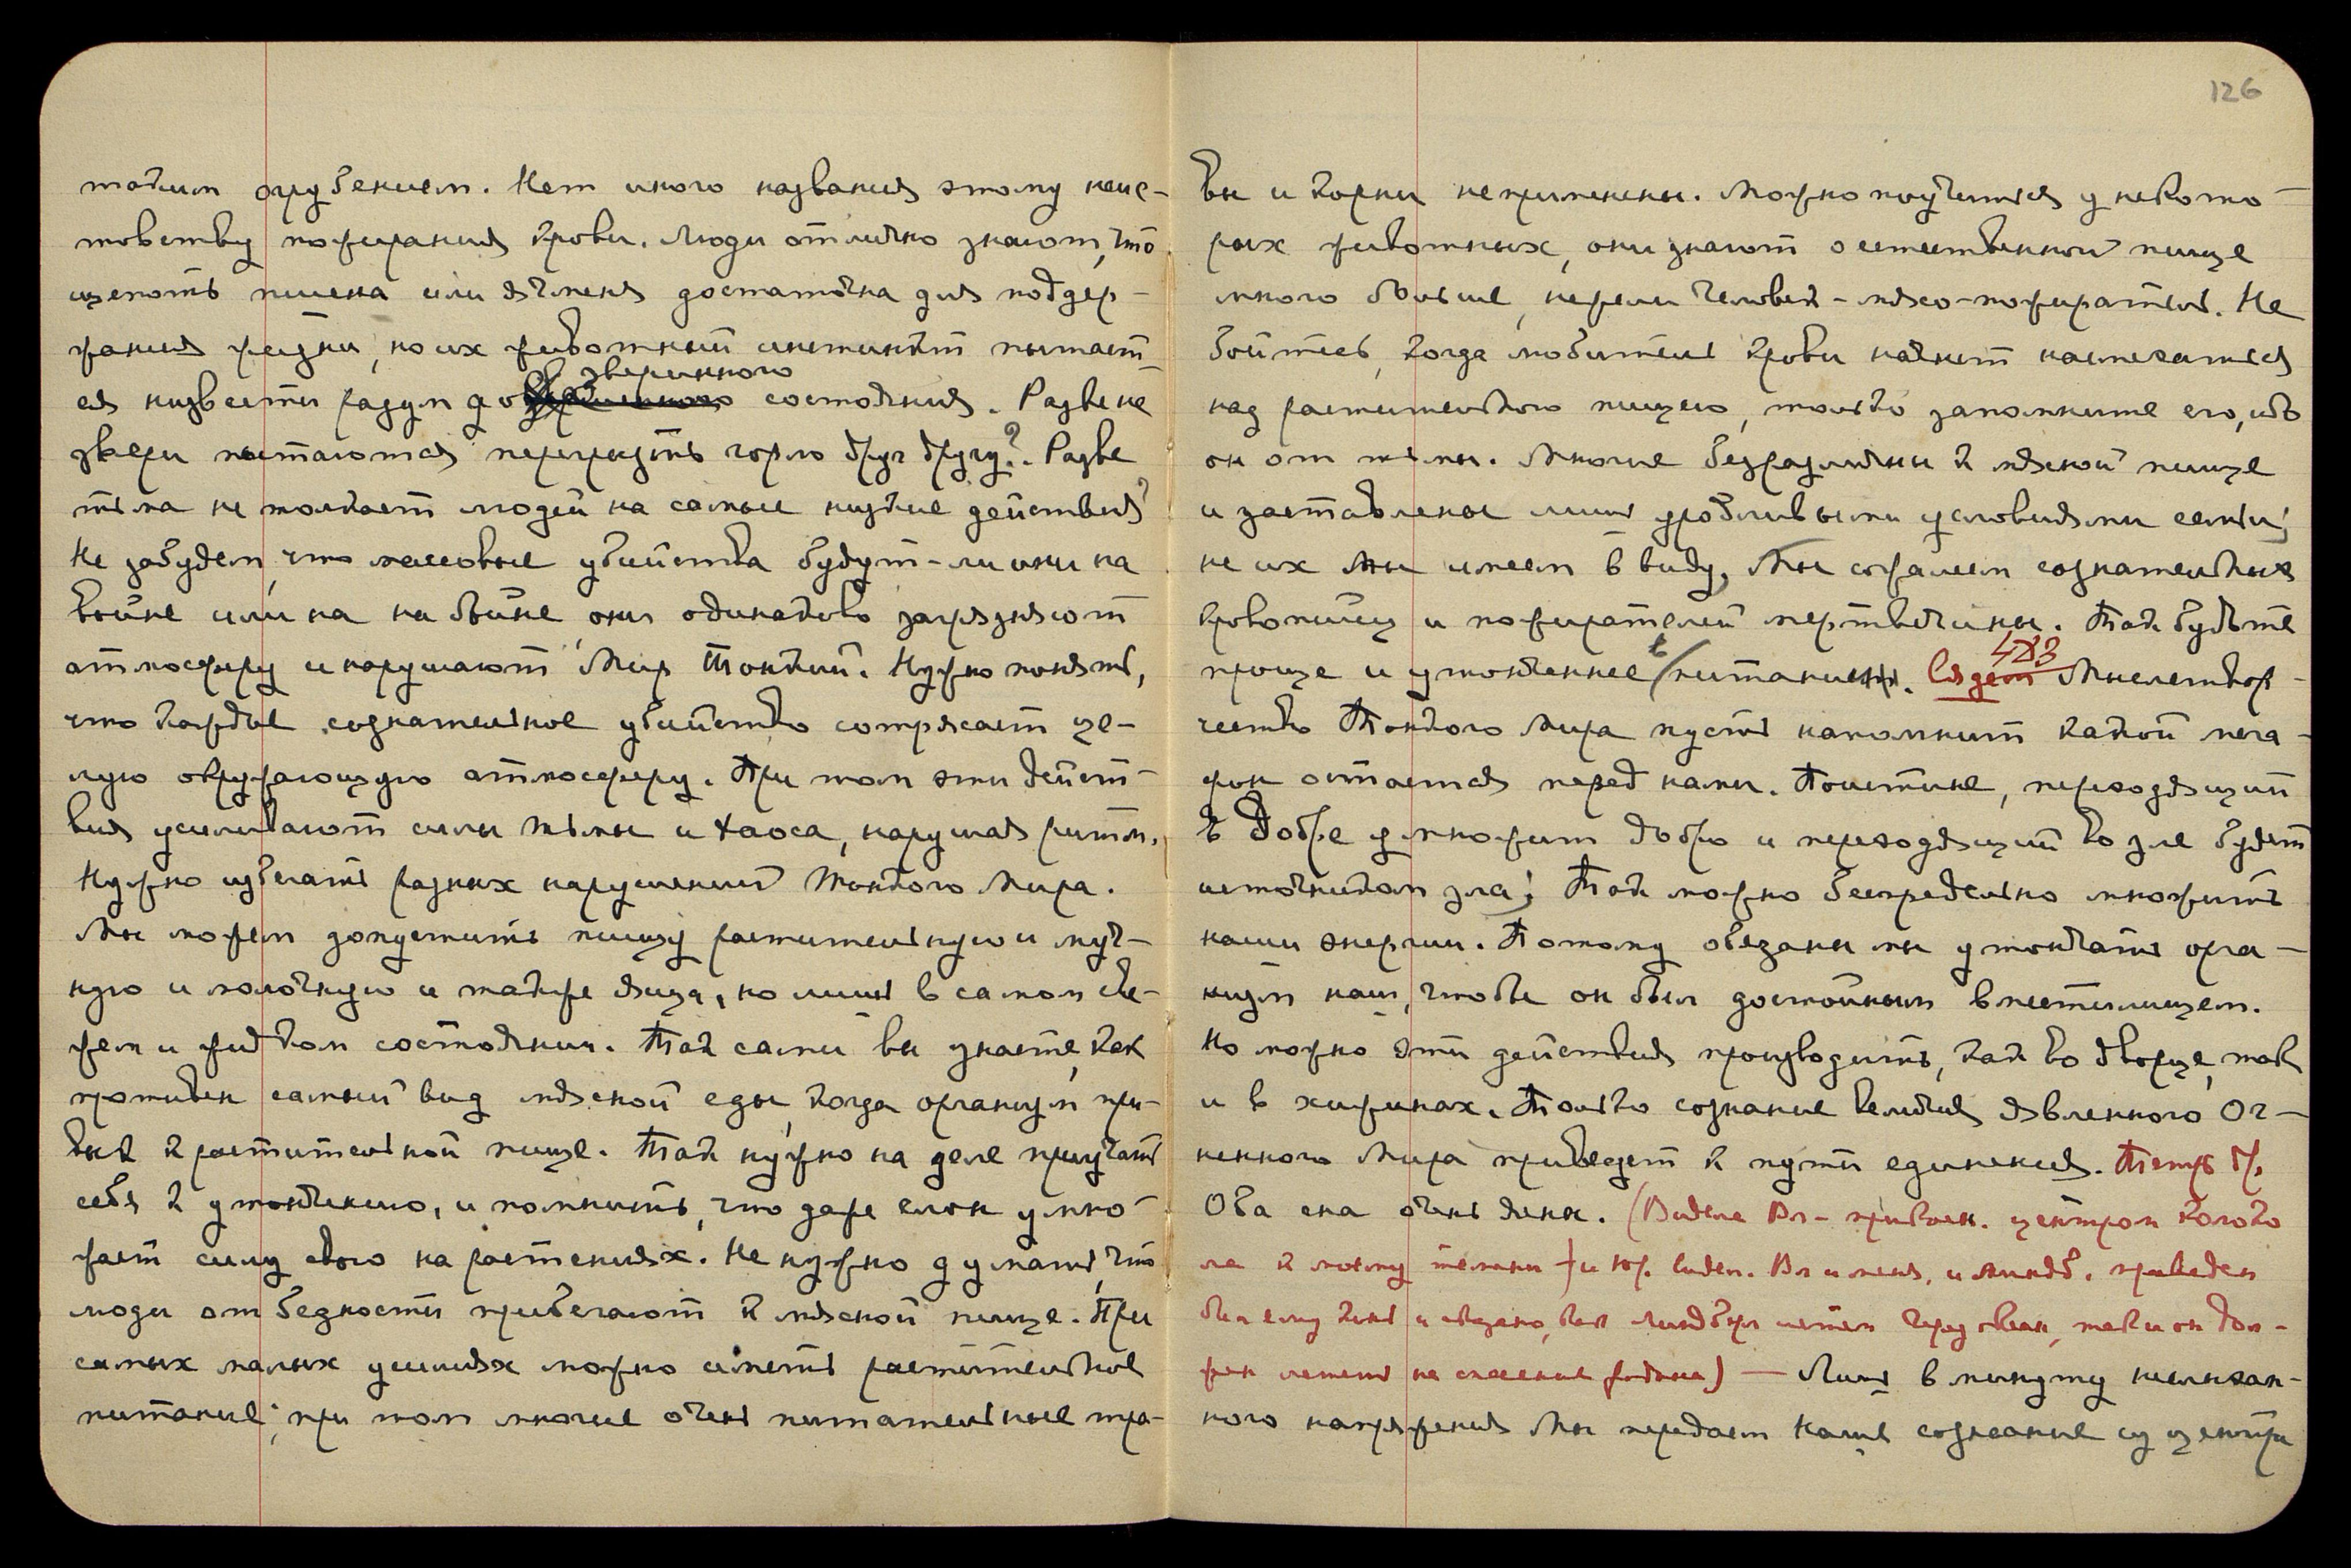 126
таким огрубением. Нет иного названия этому неис-
товству пожирания крови. Люди отлично знают, что
щепоть пшена или ячменя достаточна для поддер-
жания жизни, но их животный инстинкт пытает-
ся низвести разум до звериного состояния. Разве не
звери пытаются перегрызть горло друг другу? Разве
тьма не толкает людей на самые низкие действия?
Не забудем, что массовые убийства будут-ли они на
войне или на на бойне они одинаково загрязняют
атмосферу и нарушают Мир Тонкий. Нужно понять,
что каждое сознательное убийство сотрясает це-
лую окружающую атмосферу. При том эти дейст-
вия усиливают силы тьмы и хаоса, нарушая ритм.
Нужно избегать разных нарушений Тонкого Мира.
Мы можем допустить пищу растительную и муч-
ную и молочную и также яйца, но лишь в самом све-
жем и жидком состоянии. Так сами вы знаете, как
противен самый вид мясной еды, когда организм при-
вык к растительной пище. Так нужно на деле приучать
себя к утончению, и помнить, что даже слон умно-
жает силу свою на растениях. Не нужно думать, что
люди от бедности прибегают к мясной пище. При
самых малых усилиях можно иметь растительное
питание; при том многие очень питательные тра-
вы и корни не применены. Можно поучиться у некото-
рых животных, они знают о естественной пище
много больше, нежели человек-мясо-пожиратель. Не
бойтесь, когда любитель крови начнет насмехаться
над растительною пищею, только запомните его, ибо
он от тьмы. Многие безразличны к мясной пище
и заставлены лишь уродливыми условиями семьи;
не их мы имеем в виду, Мы сожалеем сознательных
кровопийц и пожирателей мертвечины. Так будьте
проще и утонченнее в питании. 483 Мыслетвор-
чество Тонкого Мира пусть напомнит какой мега-
фон остается перед нами. Поистине, переходящий
в Добре умножит добро и переходящий во зле будет
источником зла; Так можно беспредельно множить
наши энергии. Потому обязаны мы утончать орга-
низм наш, чтобы он был достойным вместилищем.
Но можно эти действия производить, как во дворце, так
и в хижинах. Только сознание величия явленного Ог-
ненного Мира приведет к пути единения.
Оба сна очень ясны. (Видела Вл- центром
ла к моему темени и Юр. виден. Вл и меня,
был ему и сказано, как Линдберг летел через океан, так и он дол-
жен лететь на спасение) — Лишь в минуту несказан-
ного напряжения Мы передаем Наше сознание